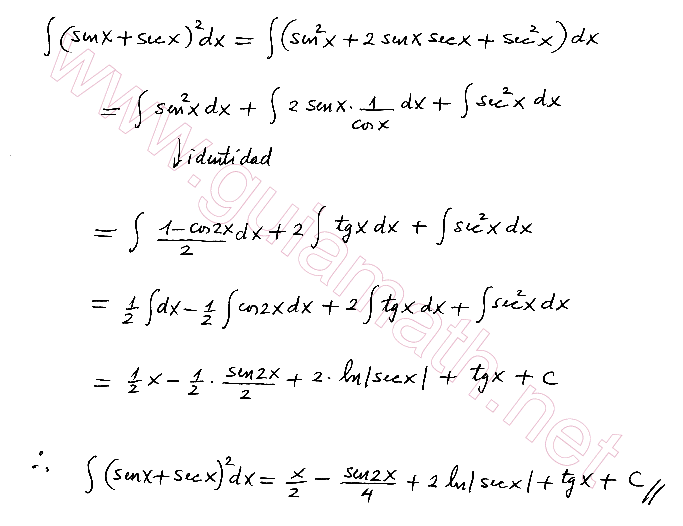 ∫(senx + secx)²dx = ∫(sen²x + 2 senx secx + sec²x)dx
= ∫ sen²x dx + ∫ 2 senx · 1/cosx dx + ∫ sec²x dx
↓ identidad
= ∫ (1 - cos2x)/2 dx + 2∫ tgx dx + ∫ sec²x dx
= 1/2 ∫dx - 1/2 ∫cos2x dx + 2∫tgx dx + ∫sec²x dx
= 1/2 x - 1/2 · sen2x/2 + 2 · ln|secx| + tgx + C
∴ ∫(senx + secx)²dx = x/2 - sen2x/4 + 2 ln|secx| + tgx + C //
www.guiamath.net